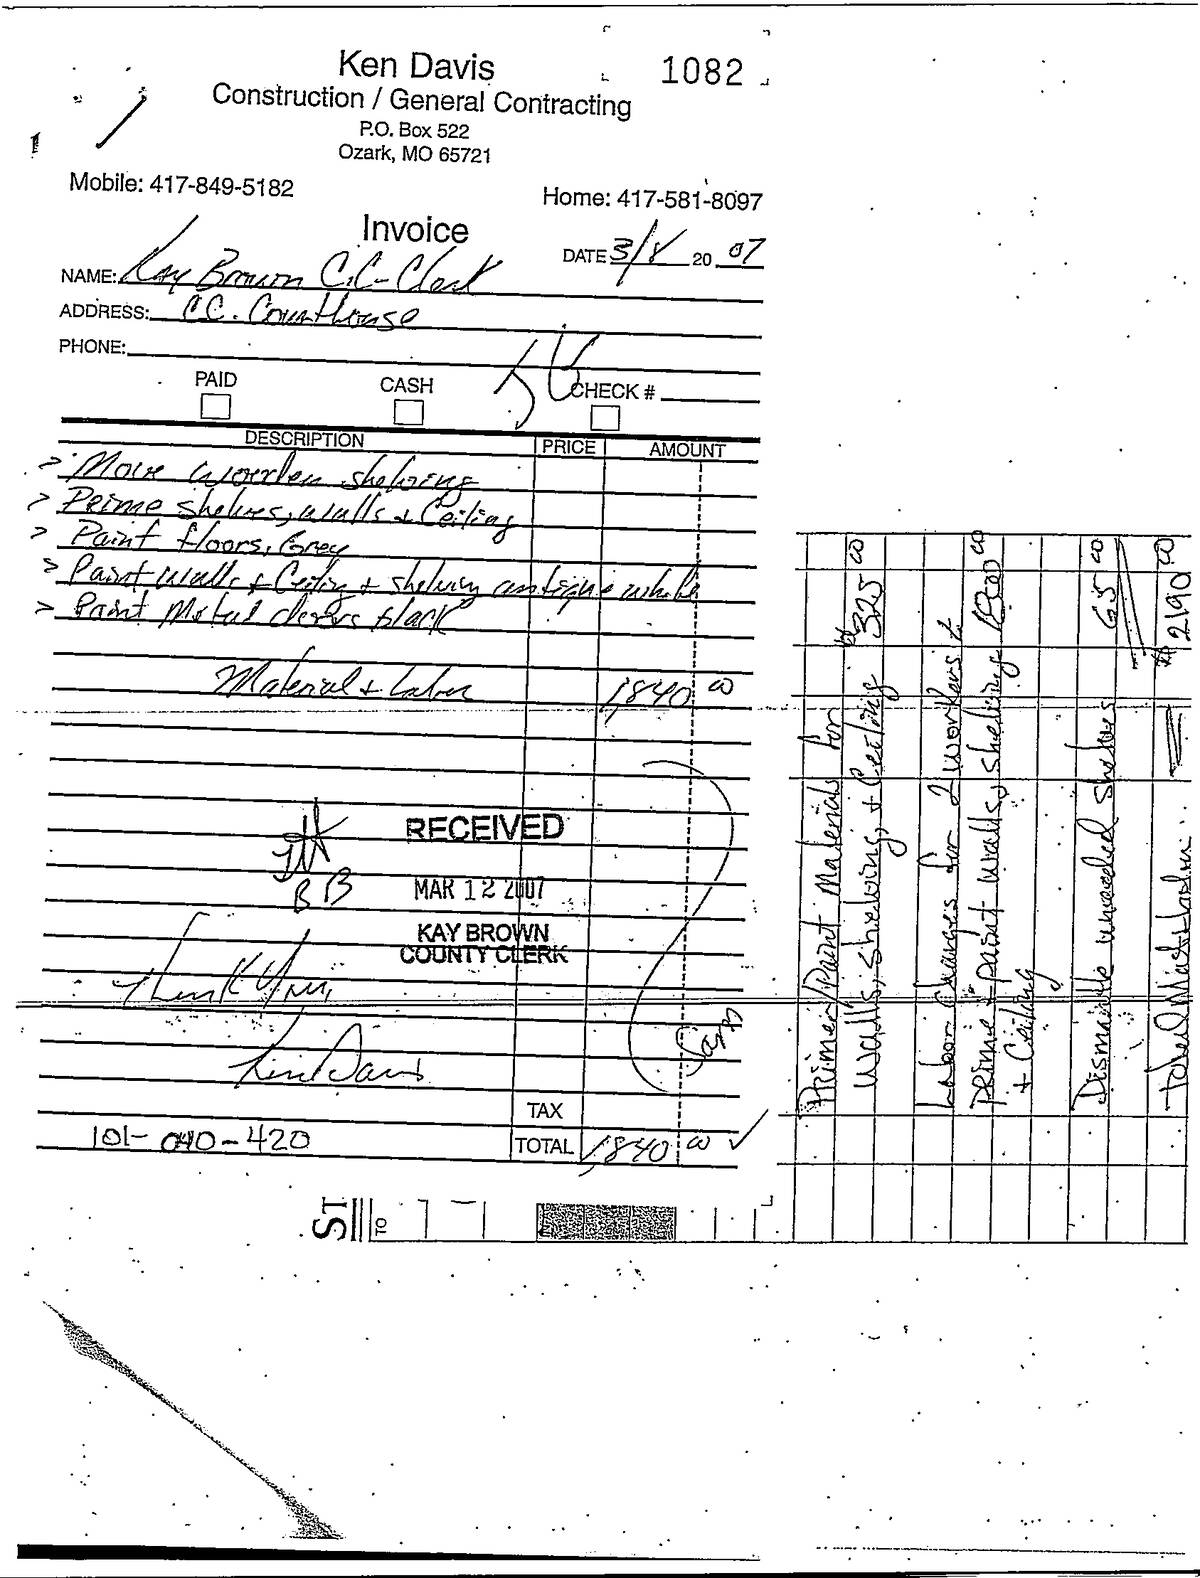 1082
Ken Davis
Construction / General Contracting
P.O. Box 522
Ozark, MO 65721
Mobile: 417-849-5182
Home: 417-581-8097
Invoice
DATE 3/8 20 07
NAME: Kay Brown C.C. Clerk
ADDRESS: C.C. Courthouse
PHONE:
PAID CASH CHECK #
DESCRIPTION PRICE AMOUNT
> Move wooden shelving
> Prime shelves, walls + Ceiling
> Paint floors, Grey
> Paint walls + Ceiling + shelving antique white
> Paint Metal doors black
Material + Labor 1,840 00
RECEIVED
MAR 12 2007
KAY BROWN
COUNTY CLERK
BB
Thank You,
Ken Davis
TAX
101-040-420
TOTAL 1,840 00
ST
TO
Primer/Paint Materials for
Walls, Shelving, + Ceiling 325 00
Labor Charges for 2 workers
Prime + paint walls, shelving 1800 00
+ Ceiling
Dismantle shelves 65 00
Total Mat + Labor $2190 00